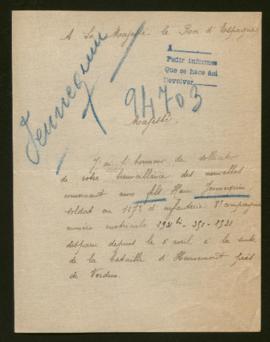 A Sa Majesté le Roi d'Espagne
A
Pedir informes
Que se hace así
Devolver
Jennequin
94703
Majesté
J'ai l'honneur de solliciter
de votre bienveillance des nouvelles
concernant mon fils Henri Jennequin
soldat au d'infanterie 8e compagnie
numéro matricule
disparu depuis le 5 avril à la suite
de la bataille d' près
de Verdun